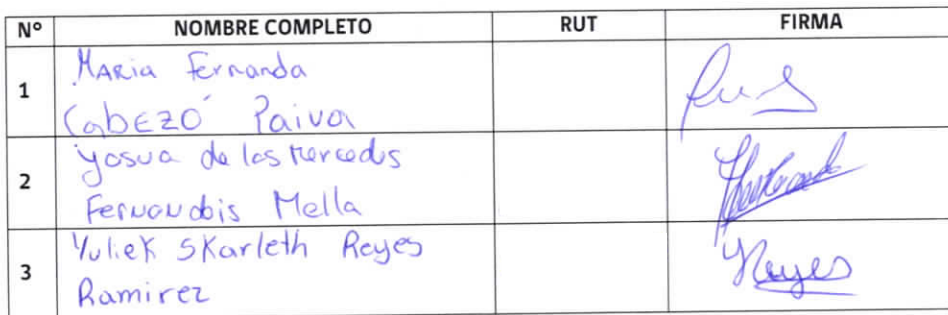 Nº NOMBRE COMPLETO RUT FIRMA
1 Maria Fernanda
Cabezó Paiva
2 Yosua de las Mercedes
Fernandois Mella
3 Yuliek Skarleth Reyes
Ramirez
Reyes